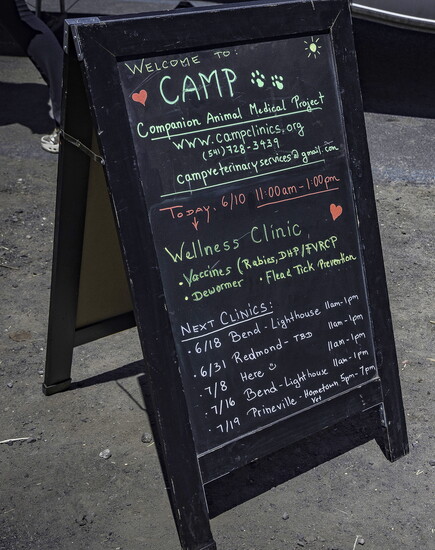 WELCOME TO:
CAMP
Companion Animal Medical Project
www.campclinics.org
(541) 728-3439
campveterinaryservices@gmail.com
TODAY. 6/10 11:00am-1:00pm
Wellness Clinic
• Vaccines (Rabies, DHP/FVRCP
• Dewormer • Flea & Tick Prevention
NEXT CLINICS:
• 6/18 Bend - Lighthouse 11am-1pm
• 6/31 Redmond - TBD 11am-1pm
• 7/8 Here 11am-1pm
• 7/16 Bend - Lighthouse 11am-1pm
• 7/19 Prineville - Hometown Vet 5pm-7pm